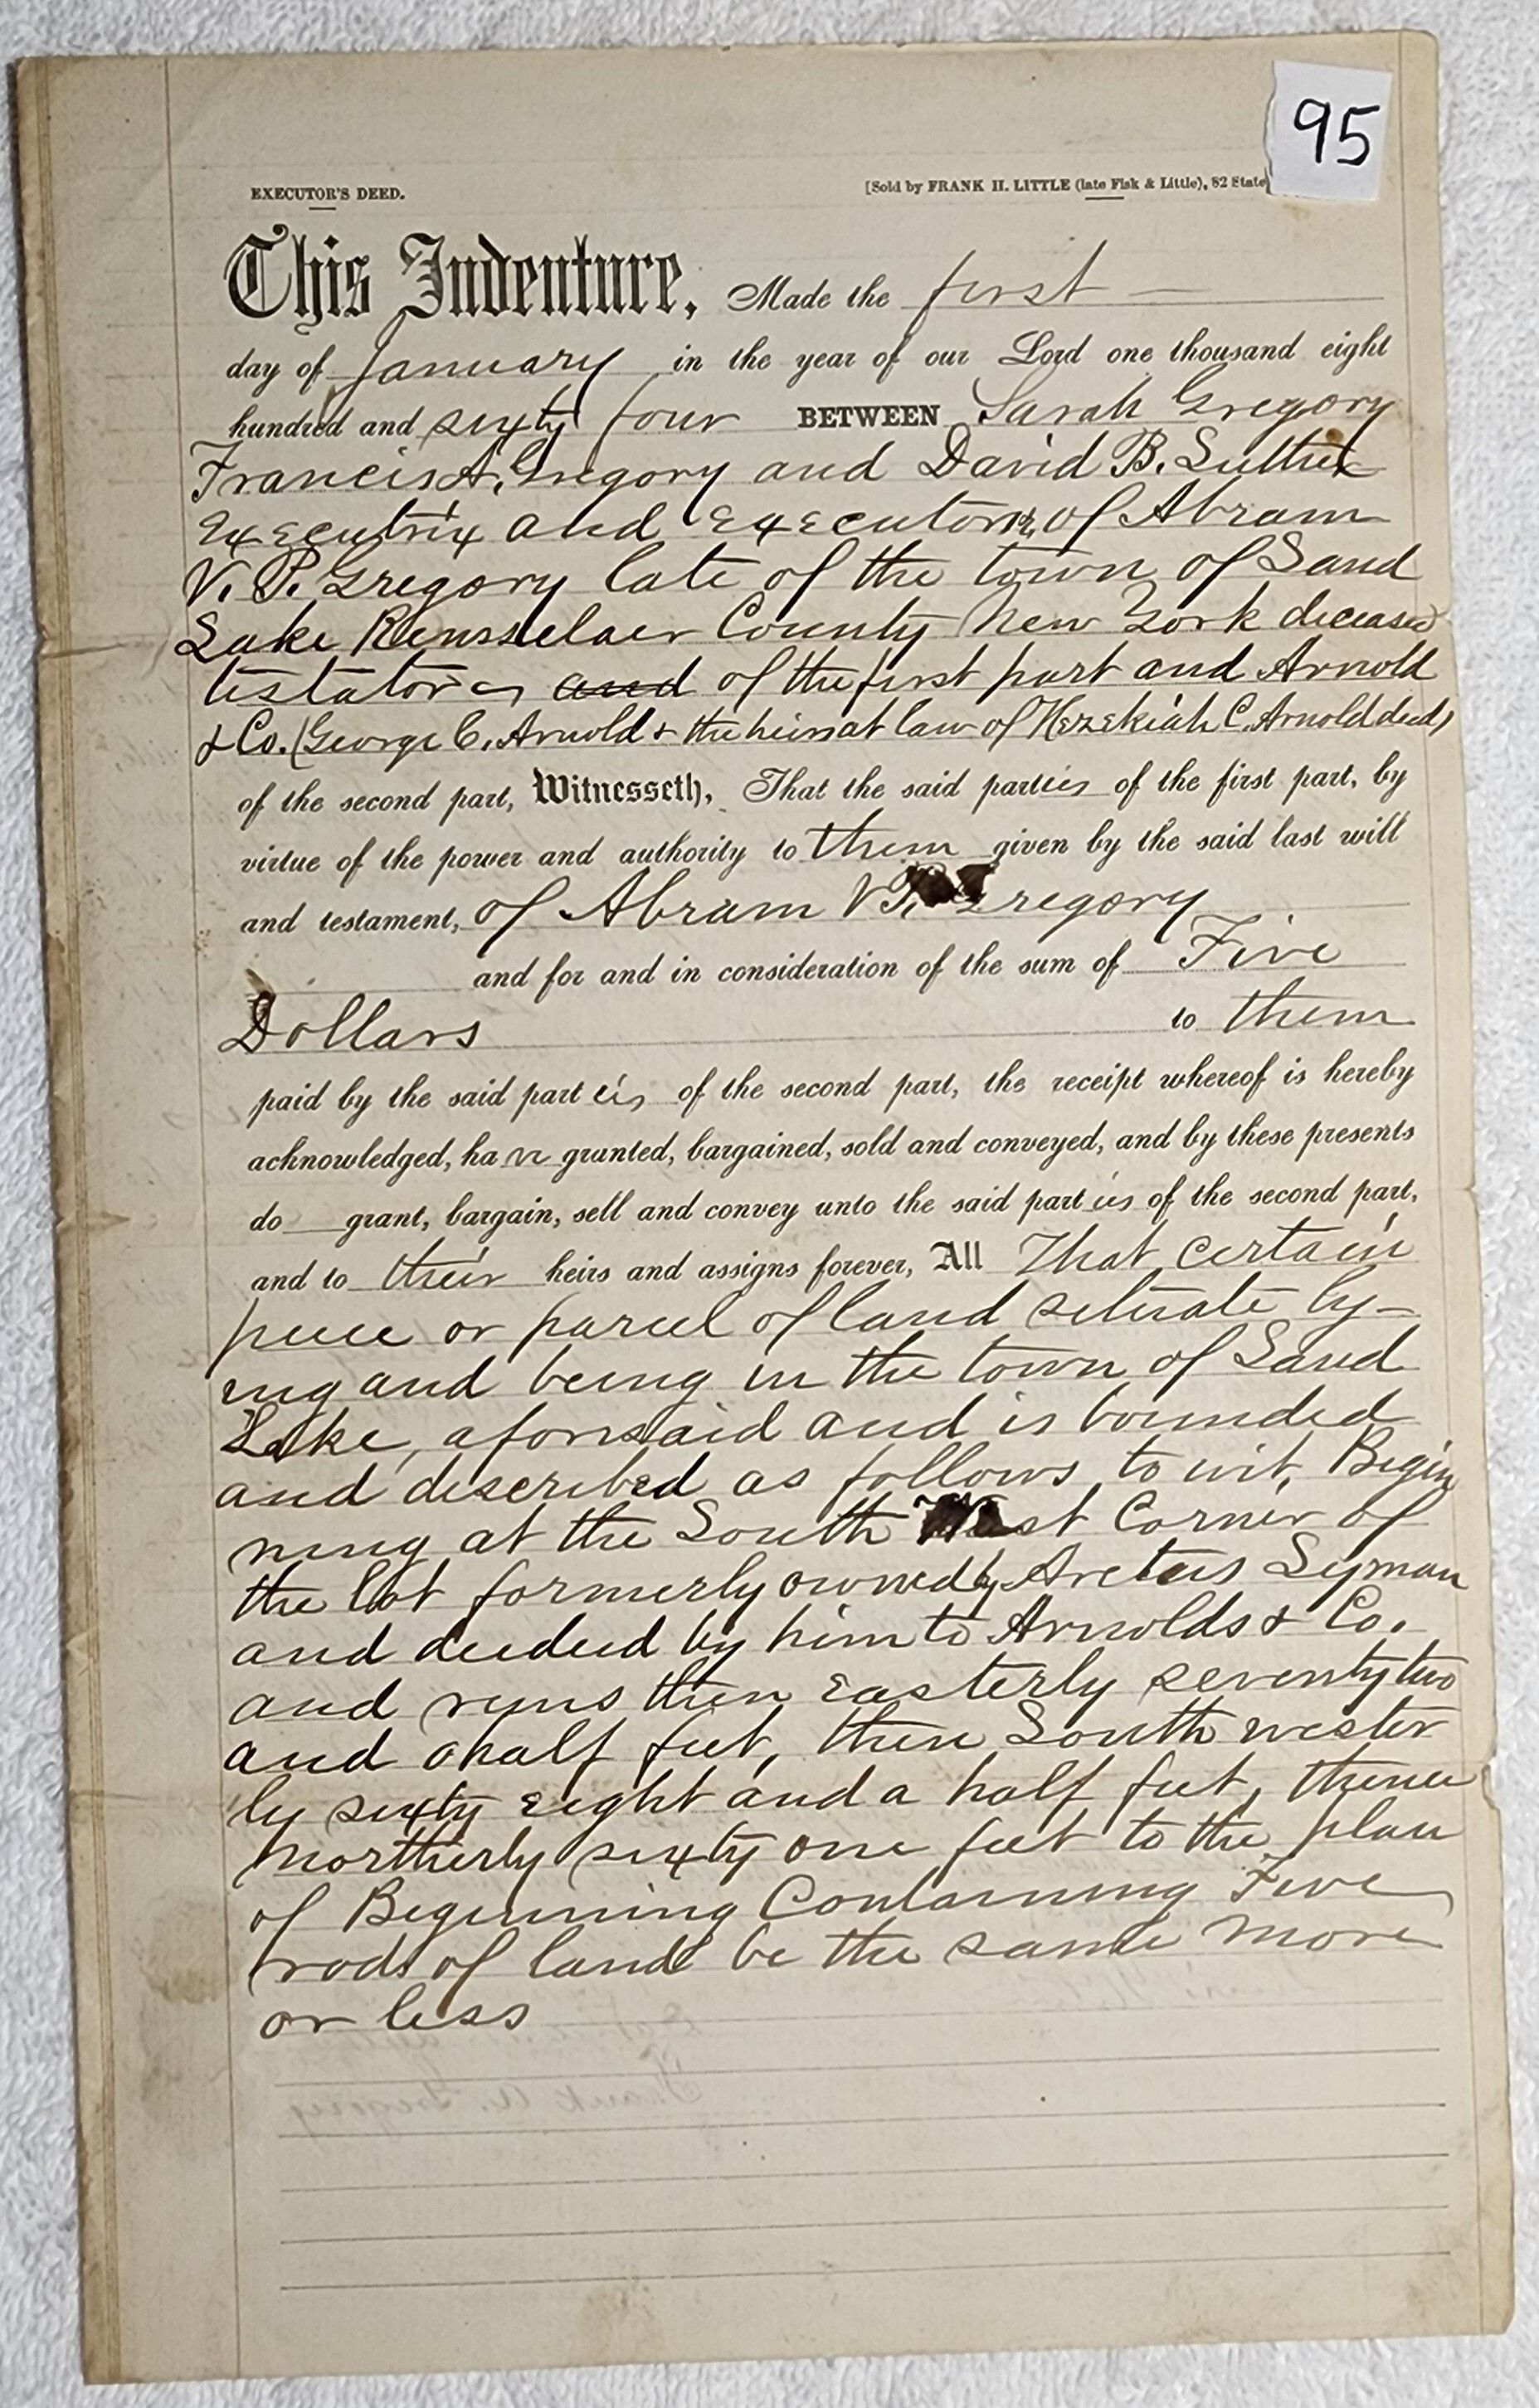 95
EXECUTOR'S DEED.
[Sold by FRANK H. LITTLE (late Fisk & Little), 82 State
This Indenture, Made the first
day of January in the year of our Lord one thousand eight
hundred and sixty four BETWEEN Sarah Gregory
Francis A. Gregory and David B. Luther
Executrix and Executors of Abram
V. P. Gregory late of the town of Sand
Lake Rensselaer County New York deceased
testator and of the first part and Arnold
& Co. (George C. Arnold & the heirs at law of Hezekiah C. Arnold decd)
of the second part, Witnesseth, That the said parties of the first part, by
virtue of the power and authority to them given by the said last will
and testament, of Abram V P. Gregory
and for and in consideration of the sum of Five
Dollars to them
paid by the said part ies of the second part, the receipt whereof is hereby
acknowledged, ha ve granted, bargained, sold and conveyed, and by these presents
do grant, bargain, sell and convey unto the said part ies of the second part,
and to their heirs and assigns forever, All That certain
piece or parcel of land situate ly-
ing and being in the town of Sand
Lake, aforesaid and is bounded
and described as follows, to wit, Begin
ning at the South st Corner of
the lot formerly owned by Aretus Lyman
and deeded by him to Arnolds & Co.
and runs then Easterly seventy two
and a half feet, then South wester
ly sixty eight and a half feet, thence
Northerly sixty one feet to the place
of Beginning Containing Five
rods of land be the same more
or less